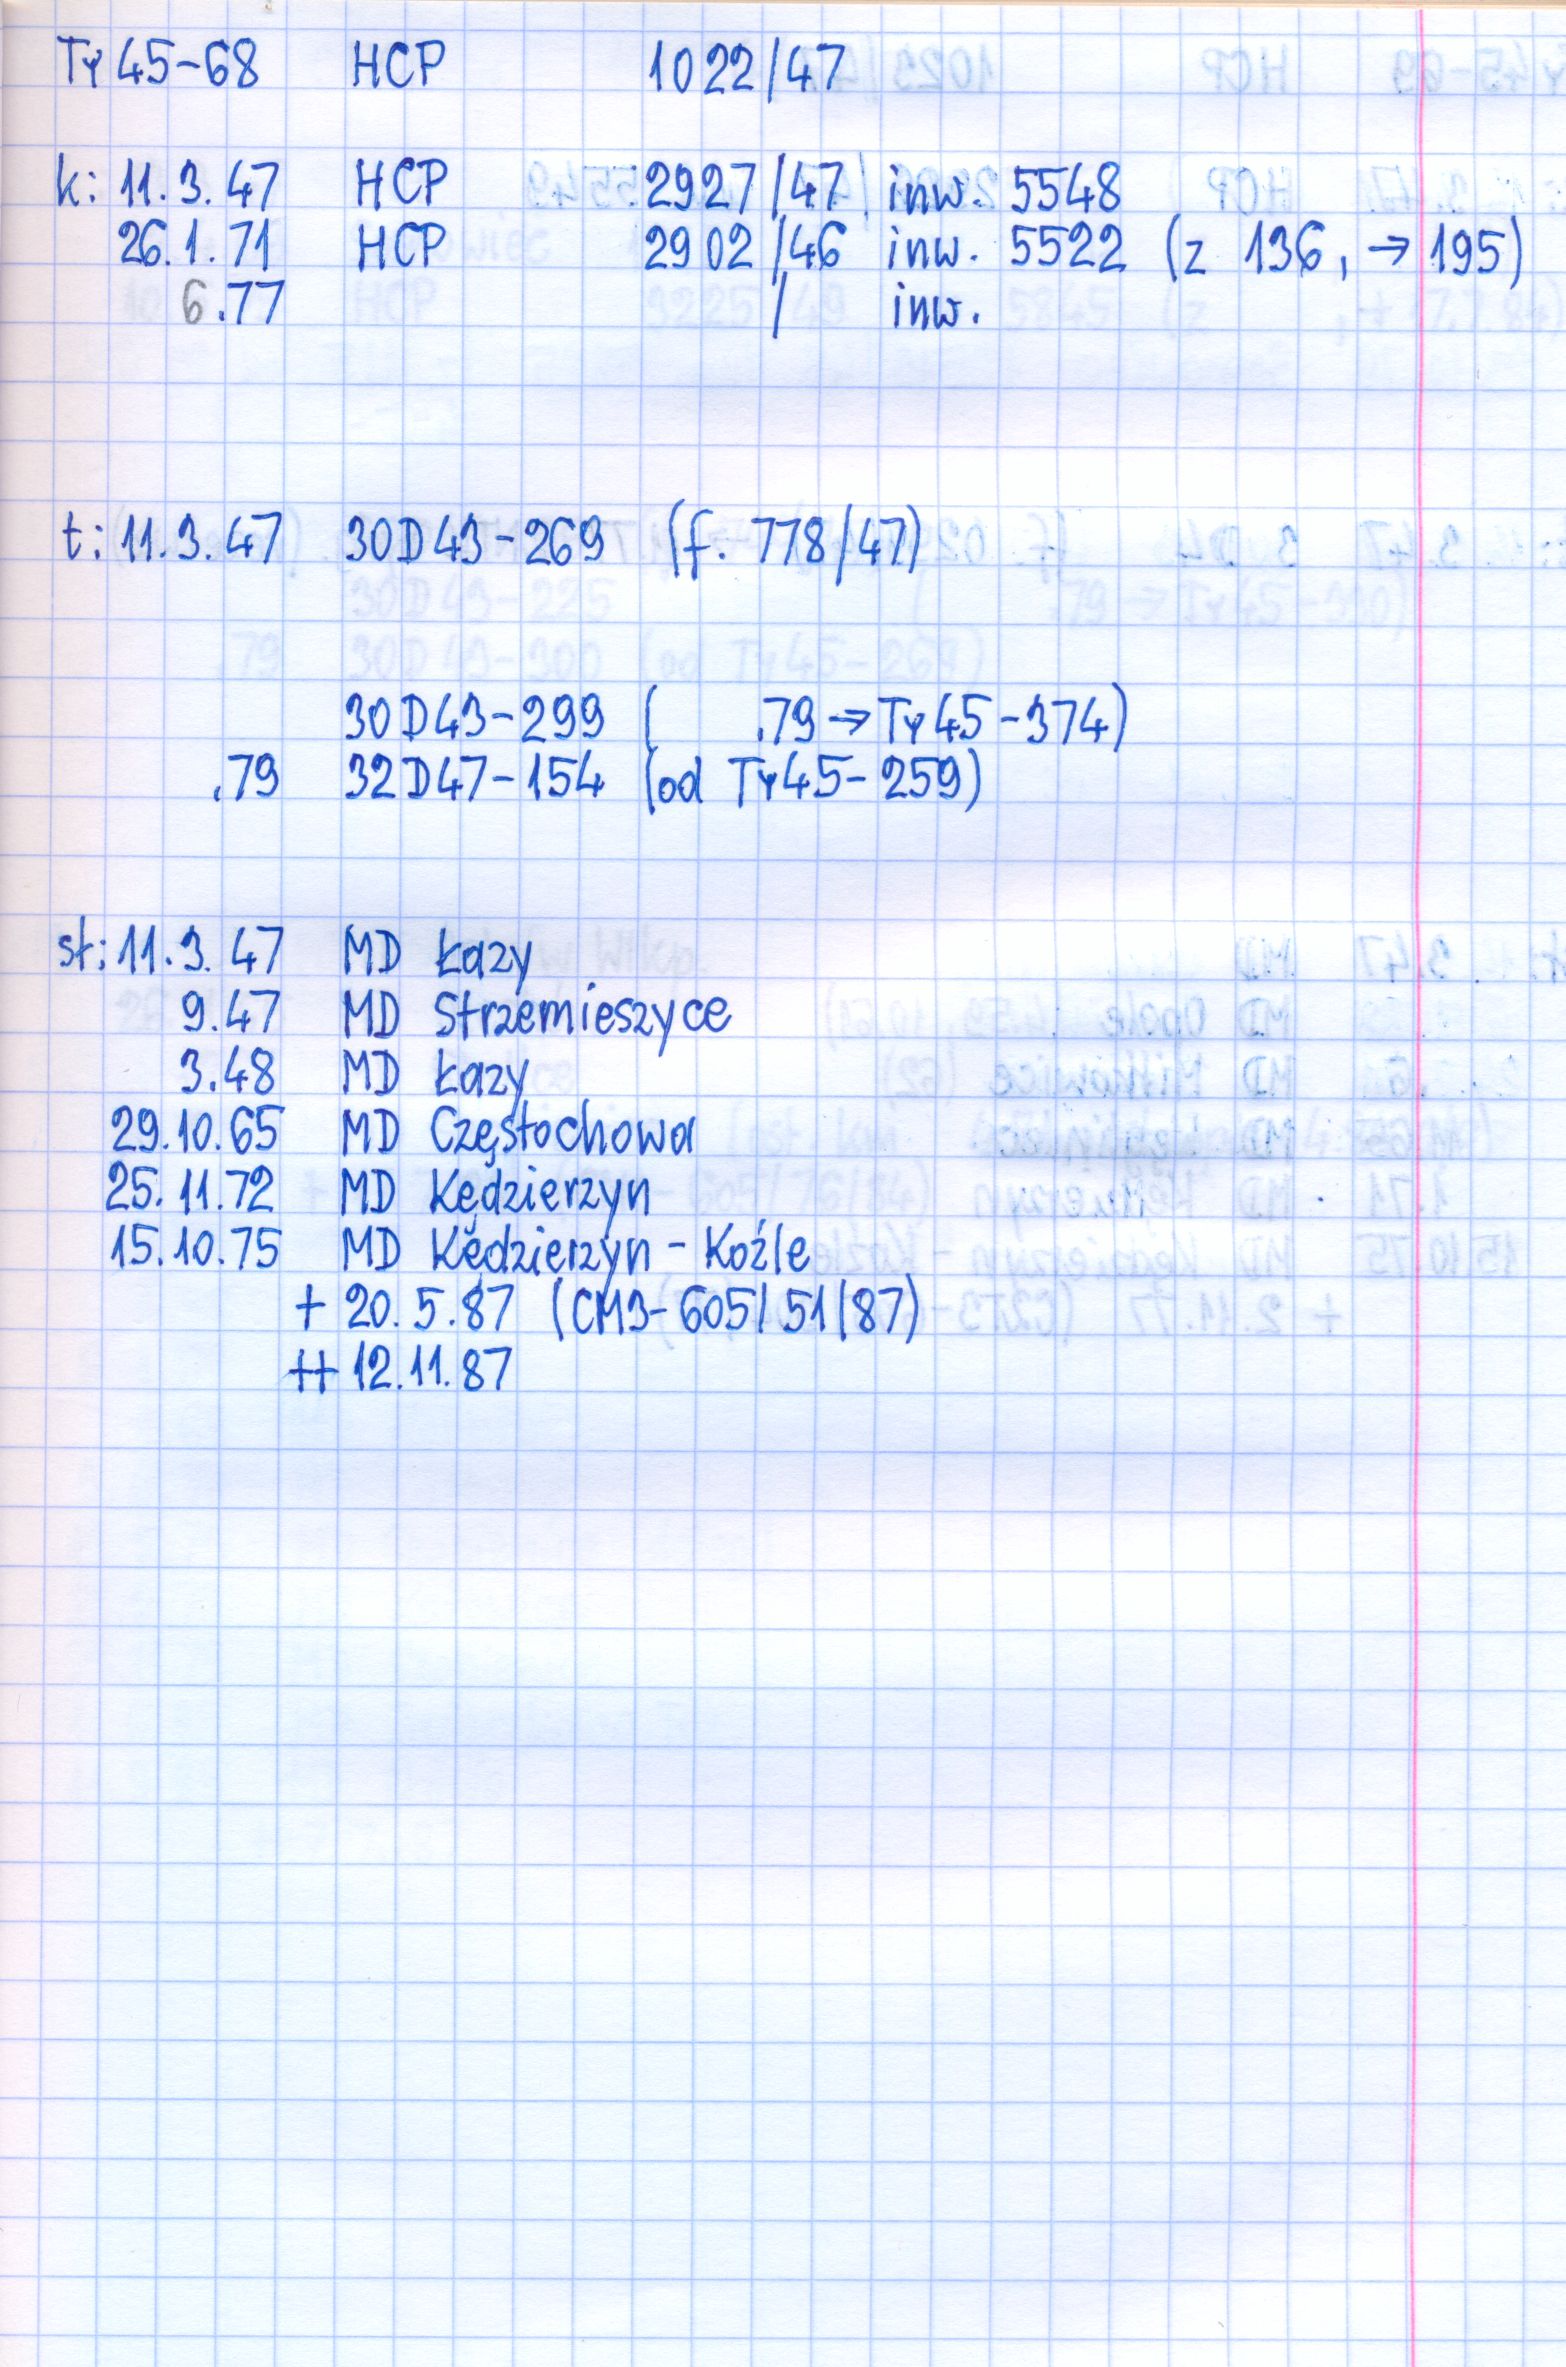 Ty45-68 HCP 1022/47
k: 11.3.47 HCP 2927/47 inw. 5548
26.1.71 HCP 2902/46 inw. 5522 (z 136, → 195)
6.77 / inw.
t: 11.3.47 30D43-269 (f. 778/47)
30D43-299 ( .79 → Ty45-374)
.79 32D47-154 (od Ty45-259)
st: 11.3.47 MD Łazy
9.47 MD Strzemieszyce
3.48 MD Łazy
29.10.65 MD Częstochowa
25.11.72 MD Kędzierzyn
15.10.75 MD Kędzierzyn - Koźle
+ 20.5.87 (CM3-605/51/87)
++ 12.11.87